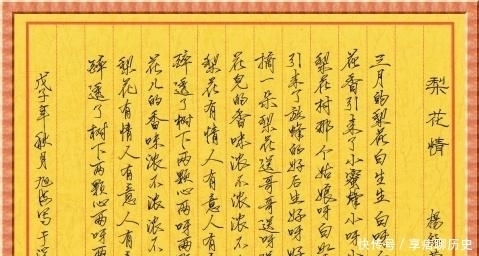 梨花情
杨
三月的梨花白生生 白呀
花香引来了小蜜蜂 小呀
梨花村那个姑娘呀白
引来了放蜂的好后生 好呀
摘一朵梨花送哥哥 送呀
花儿的香味浓不浓
梨花有情人有意 人有
醉透了树下两颗心 两呀
花儿的香味浓不浓 浓不
梨花有情人有意 人有
醉透了树下两颗心 两呀两
戊子年 秋月 写于
快传号 / 历史